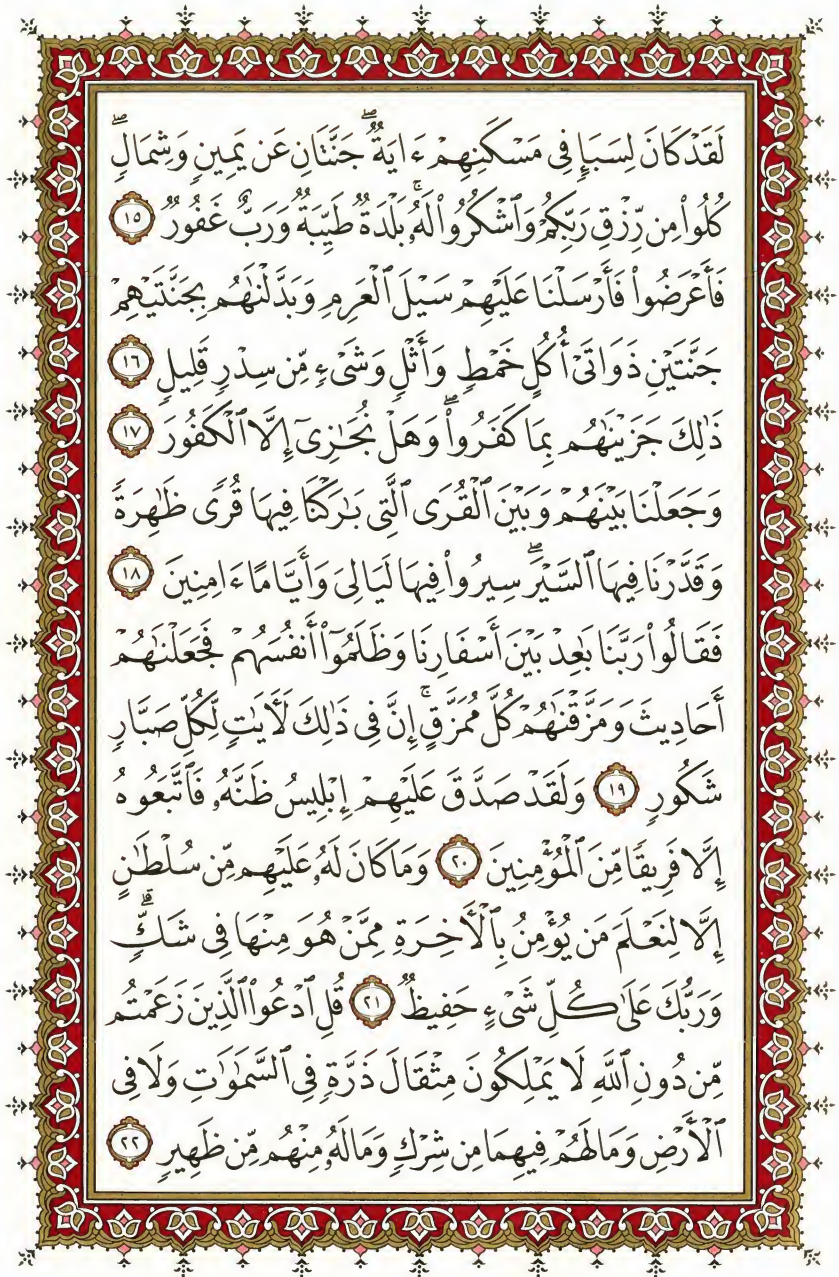 لَقَدْ كَانَ لِسَبَإٍ فِى مَسْكَنِهِمْ ءَايَةٌۖ جَنَّتَانِ عَن يَمِينٍ وَشِمَالٍۖ
كُلُوا۟ مِن رِّزْقِ رَبِّكُمْ وَٱشْكُرُوا۟ لَهُۥۚ بَلْدَةٌ طَيِّبَةٌ وَرَبٌّ غَفُورٌ ١٥
فَأَعْرَضُوا۟ فَأَرْسَلْنَا عَلَيْهِمْ سَيْلَ ٱلْعَرِمِ وَبَدَّلْنَٰهُم بِجَنَّتَيْهِمْ
جَنَّتَيْنِ ذَوَاتَىْ أُكُلٍ خَمْطٍ وَأَثْلٍ وَشَىْءٍ مِّن سِدْرٍ قَلِيلٍ ١٦
ذَٰلِكَ جَزَيْنَٰهُم بِمَا كَفَرُوا۟ۖ وَهَلْ نُجَٰزِىٓ إِلَّا ٱلْكَفُورَ ١٧
وَجَعَلْنَا بَيْنَهُمْ وَبَيْنَ ٱلْقُرَى ٱلَّتِى بَٰرَكْنَا فِيهَا قُرًى ظَٰهِرَةً
وَقَدَّرْنَا فِيهَا ٱلسَّيْرَۖ سِيرُوا۟ فِيهَا لَيَالِىَ وَأَيَّامًا ءَامِنِينَ ١٨
فَقَالُوا۟ رَبَّنَا بَٰعِدْ بَيْنَ أَسْفَارِنَا وَظَلَمُوٓا۟ أَنفُسَهُمْ فَجَعَلْنَٰهُمْ
أَحَادِيثَ وَمَزَّقْنَٰهُمْ كُلَّ مُمَزَّقٍۚ إِنَّ فِى ذَٰلِكَ لَءَايَٰتٍ لِّكُلِّ صَبَّارٍ
شَكُورٍ ١٩ وَلَقَدْ صَدَّقَ عَلَيْهِمْ إِبْلِيسُ ظَنَّهُۥ فَٱتَّبَعُوهُ
إِلَّا فَرِيقًا مِّنَ ٱلْمُؤْمِنِينَ ٢٠ وَمَا كَانَ لَهُۥ عَلَيْهِم مِّن سُلْطَٰنٍ
إِلَّا لِنَعْلَمَ مَن يُؤْمِنُ بِٱلْءَاخِرَةِ مِمَّنْ هُوَ مِنْهَا فِى شَكٍّۗ
وَرَبُّكَ عَلَىٰ كُلِّ شَىْءٍ حَفِيظٌ ٢١ قُلِ ٱدْعُوا۟ ٱلَّذِينَ زَعَمْتُم
مِّن دُونِ ٱللَّهِ لَا يَمْلِكُونَ مِثْقَالَ ذَرَّةٍ فِى ٱلسَّمَٰوَٰتِ وَلَا فِى
ٱلْأَرْضِ وَمَا لَهُمْ فِيهِمَا مِن شِرْكٍ وَمَا لَهُۥ مِنْهُم مِّن ظَهِيرٍ ٢٢